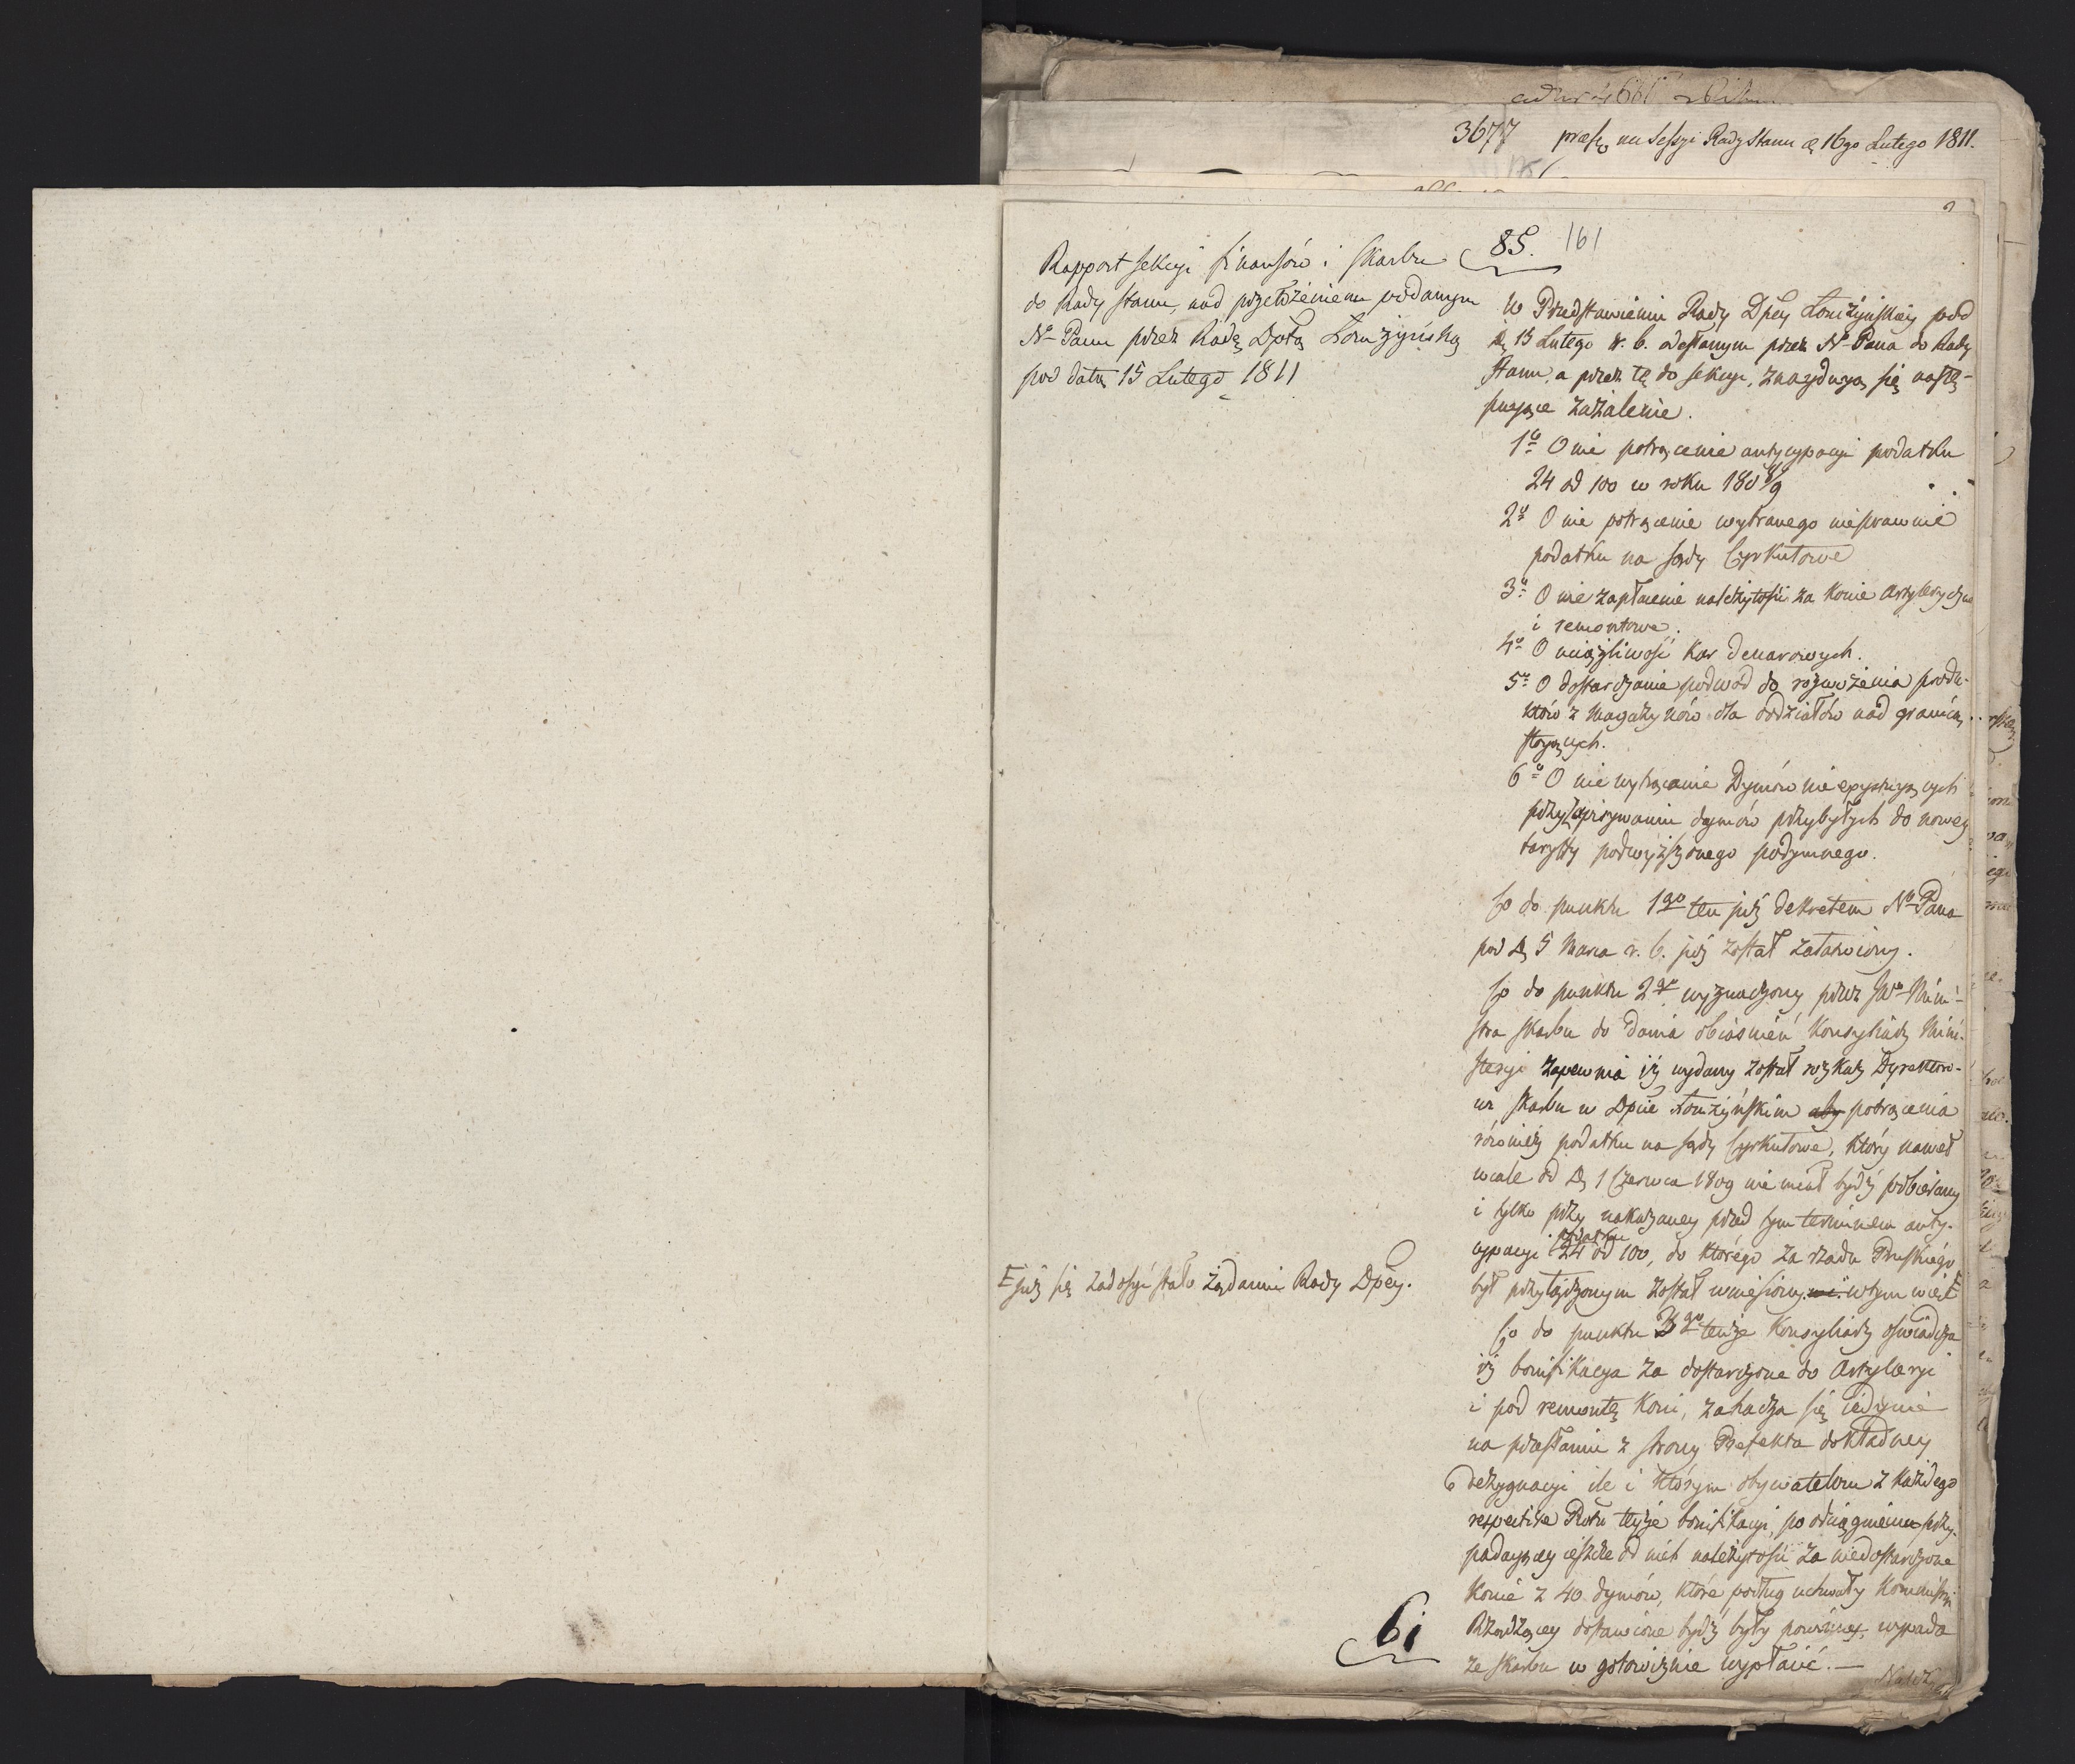 3677 præs. na Sessyi Rady Stanu d. 16go Lutego 1811.
85. 161
Rapport sekcyi finansów i skarbu
do Rady stanu, nad przełożeniem podanym
N. Panu przez Radę Dptą Łomżyńską
pod datą 15 Lutego 1811
W Przedstawieniu Rady Dpey Łomżyńskiey pod
D. 15 Lutego r. b. odesłanym przez N. Pana do Rady
Stanu, a przez tę do sekcyi, znayduyą się nastę-
puyące zażalenie.
1o O nie potrącenie antycypacyi podatku
24 od 100 w roku 1808/9
2o O nie potrącenie wybranego niesprawnie
podatku na sądy Cyrkułowe
3o O nie zapłacenie należytości za konie artyleryczne
i remontowe.
4o O uciążliwość kar denarowych.
5o O dostarczanie podwod do rozwożenia produ-
któw z magazynów dla oddziałów nad granicą
stoyących.
6o O nie wytrącanie Dymów nie exystuyących
przy zapisywaniu dymów przybyłych do nowey
taryffy podwyższonego podymnego.
Co do punktu 1go ten już dekretem N. Pana
pod D. 5 Marca r. b. już został załatwiony.
Co do punktu 2go wyznaczony przez JW. Mini-
stra skarbu do dania obiaśnień Konsyliarz Mini-
steryi zapewnia iż wydany został rozkaz Dyrektoro-
wi skarbu w Dpcie Łomżyńskim aby potrącenia
również podatku na sądy Cyrkułowe, który nawet
wcale od D. 1 Czerwca 1809 nie miał bydź pobierany
i tylko przy nakazaney przed tym terminem anty-
cypacyi podatku 24 od 100, do którego za rządu Pruskiego
był przyłączonym został wniesiony. w tym więc
E już się zadosyć stało żądaniu Rady Dpey.
Co do punktu 3go tenże Konsyliarz oświadcza
iż bonifikacya za dostarczone do Artyleryi
i pod remontę koni, zahacza się iedynie
na przesłaniu z strony Prefekta dokładney
dezygnacyi ile i którym obywatelom z każdego
respective Powtu teyże bonifikacyi, po odciągnieniu przy-
padayącey ieszcze od nich należytości za niedostarczone
konie z 40 dymów, które podług uchwały Kommissyi
Rządzącey dostawione bydź były powinny, wypada
ze skarbu w gotowiźnie wypłacić. —
61